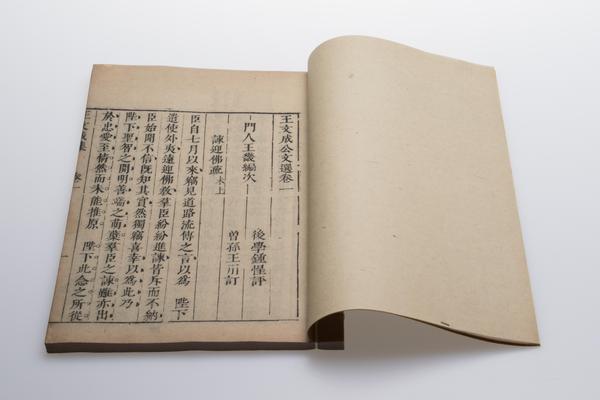 王文成公文選卷一
門人王畿編次
後學鍾惺評
曾孫王 訂
諫迎佛疏未上
臣自七月以來竊見道路流傳之言以為 陛下
道使外夷遠迎佛教羣臣紛紛進諫皆斥而不納
臣始聞不信既知其實然獨竊喜幸以為此乃
陛下聖智之開明善端之萌蘖羣臣之諫雖亦出
於忠愛至情然而未能推原 陛下此念之所從
王文成 卷一